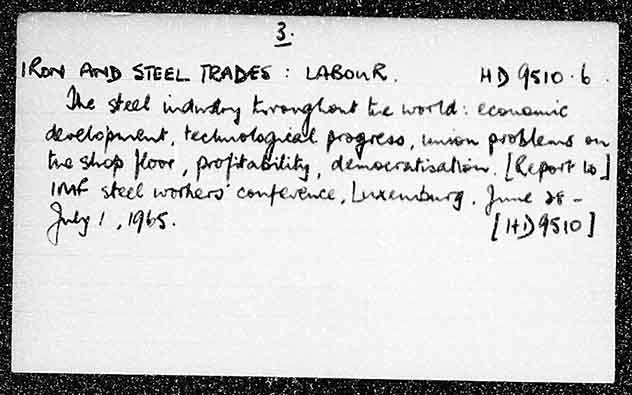 3.
IRON AND STEEL TRADES : LABOUR. HD 9510.6.
The steel industry throughout the world: economic
development, technological progress, union problems on
the shop floor, profitability, democratisation. [Report to]
IMF steel workers' conference, Luxemburg. June 28-
July 1, 1965. [HD 9510]